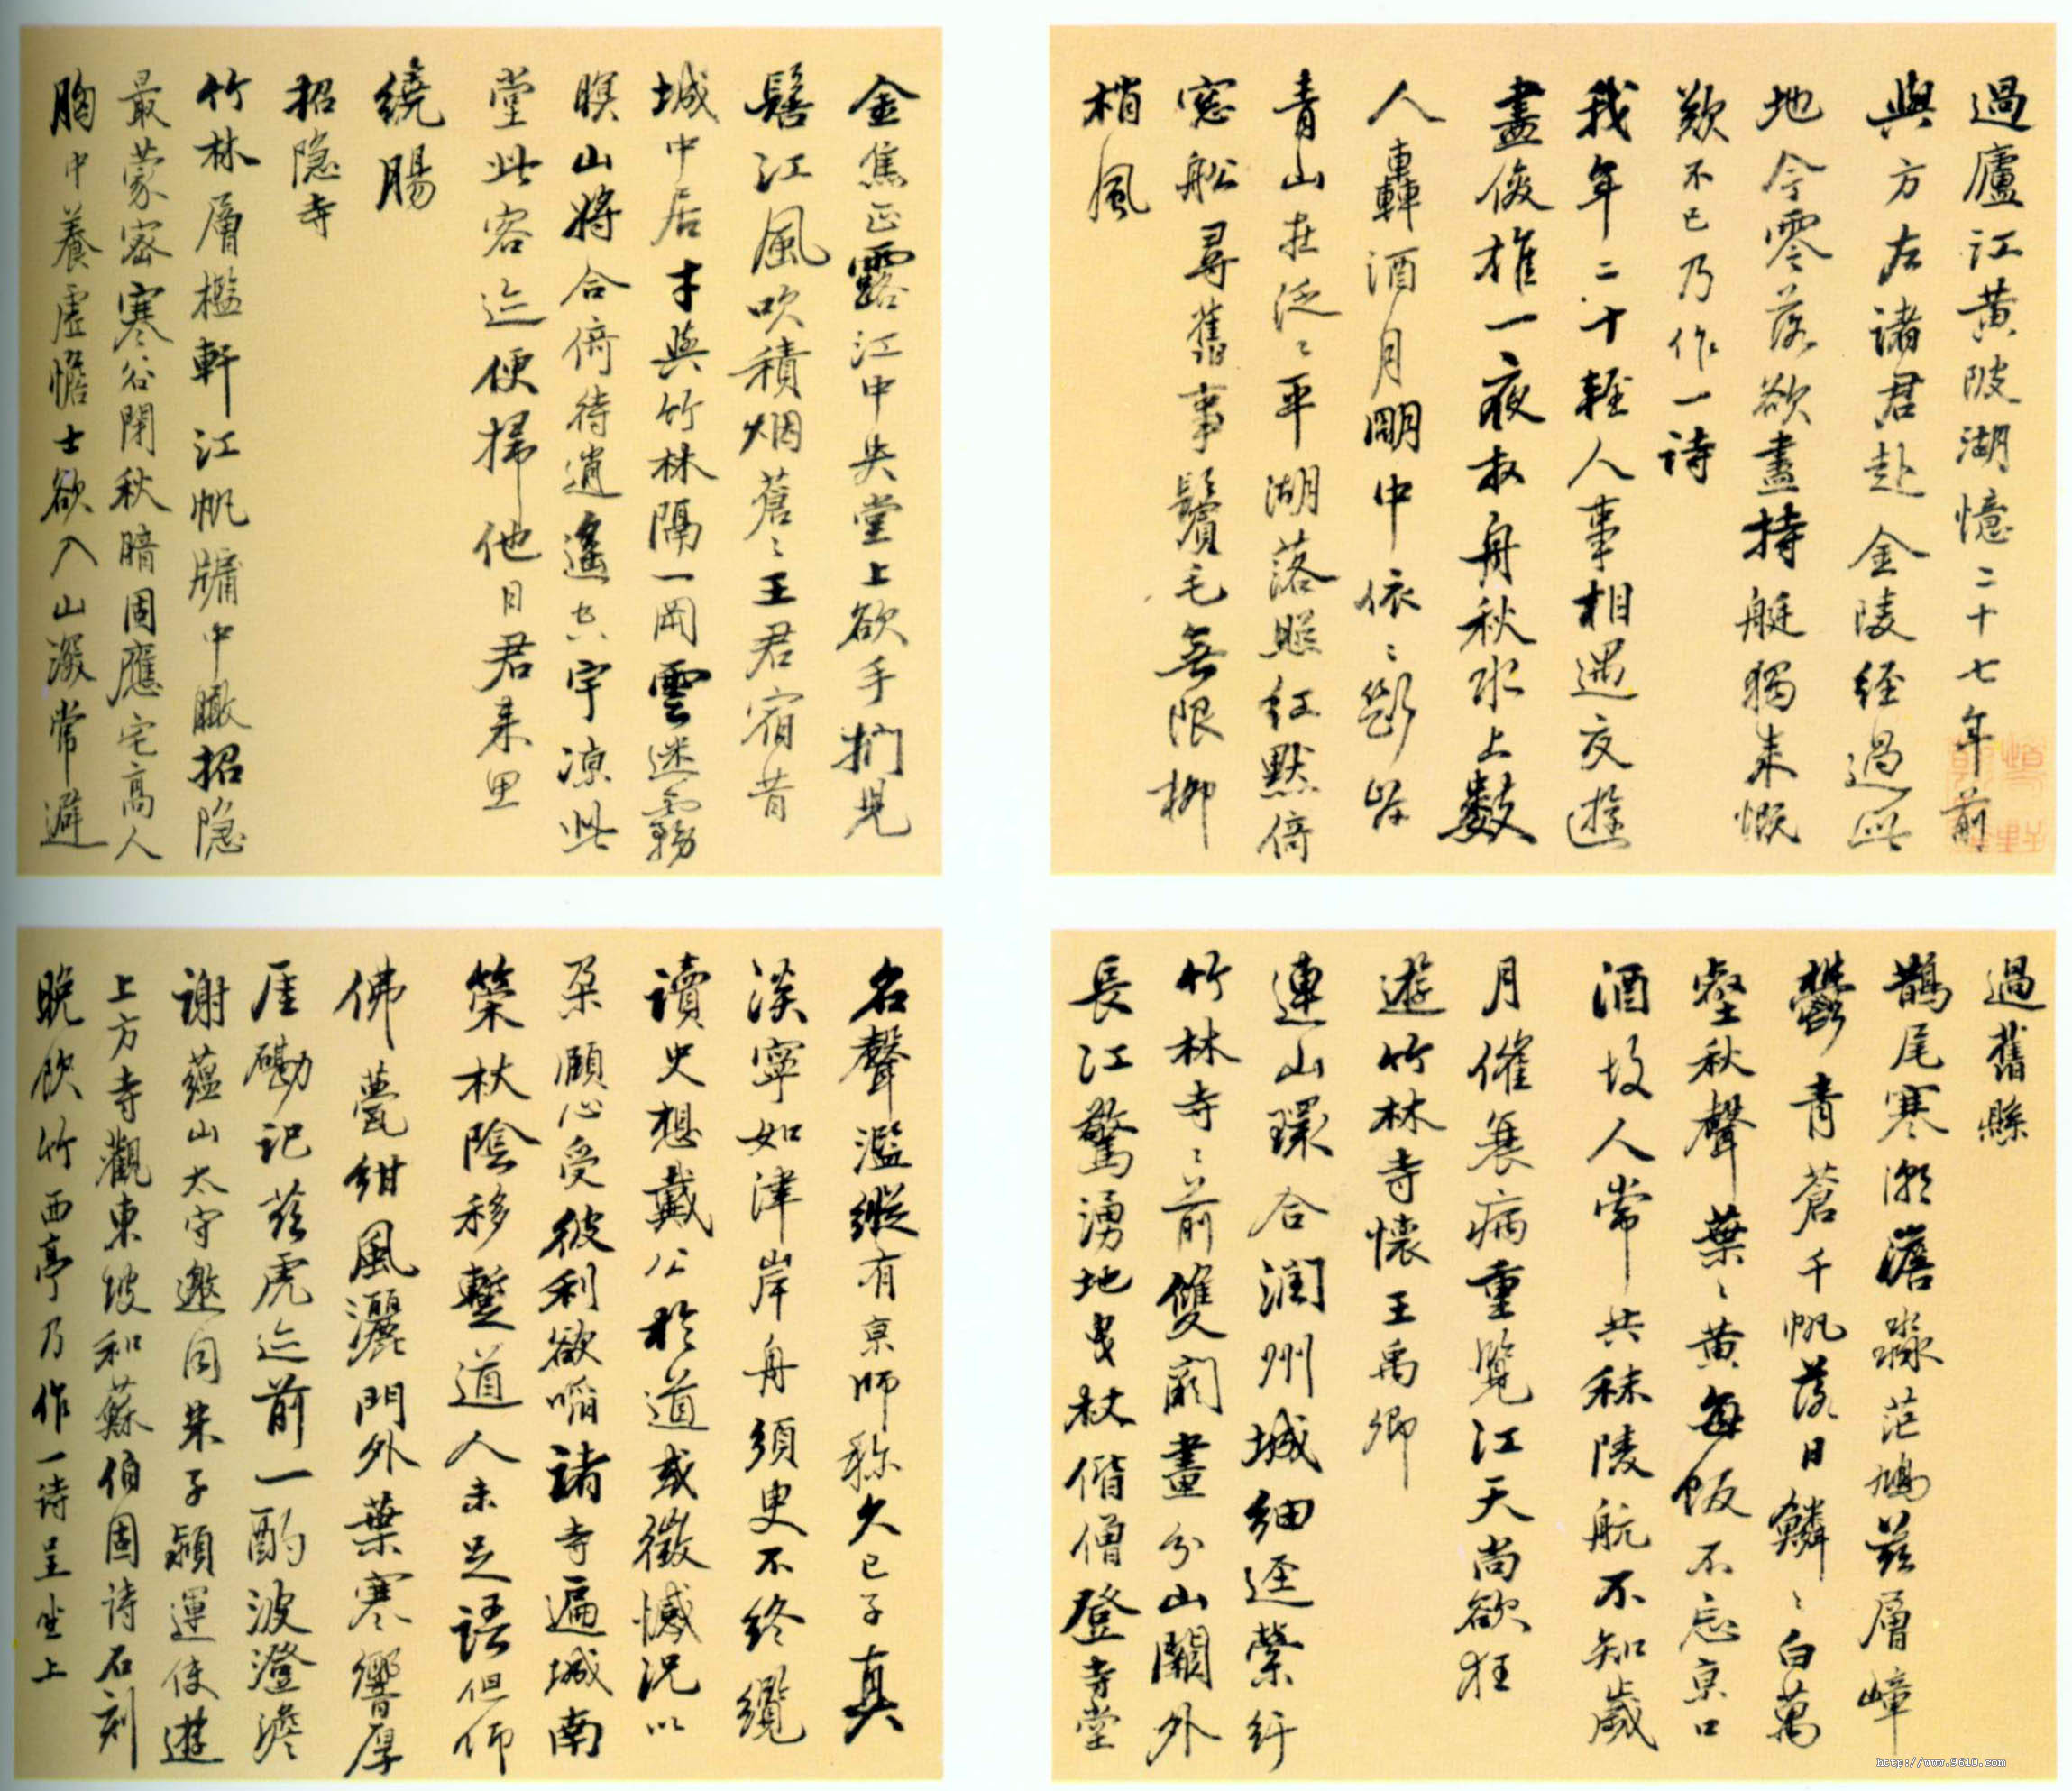 過廬江黃陂湖憶二十七年前
與方左諸君赴金陵經過此
地今零落欲盡持艇獨來慨
歎不已乃作一詩
我年二十輕人事相遇交遊
盡俊雄一夜扠舟秋水上數
人轟酒月明中依〻斷岸
青山在泛〻平湖落照紅默倚
窓船尋舊事鬢毛無限柳
梢風
過舊縣
鵲尾寒瀕澹淼茫鳩茲層嶂
鬱青蒼千帆落日鱗〻白萬
壑秋聲葉〻黃每飯不忘京口
酒故人常共秣陵航不知歲
月催衰病重覽江天尚欲狂
遊竹林寺懷王禹卿
連山環合潤州城細逕縈紆
竹林寺〻前雙闕畫分山關外
長江驚湧地曳杖偕僧登寺堂
金焦正露江中央堂上欲手捫兒
髻江風吹積烟蒼〻王君宿昔
城中居才與竹林隔一岡雲迷霧
暝山將合倚待逍遙宇凉此
堂此客迄便掃他日君來里
繞腸
招隱寺
竹林層檻軒江帆牖中瞰招隱
最蒙密寒谷閉秋暗固應宅高人
胸中養虛憺士欲入山深常避
名聲濫縱有京師稱久已子真
淡寧如津岸舟須臾不終纜
讀史想戴公於道或徵憾況以
朵頤心受彼利欲啗諸寺遍城南
築杖陰移蹔道人未足語但仰
佛甍紺風灑門外葉寒響厚
厓磡記茲虎迹前一酌波澄澹
謝蘊山太守邀同朱子潁運使遊
上方寺觀東坡和蘇伯固詩石刻
晚飲竹西亭乃作一詩呈坐上
http://www.9610.com